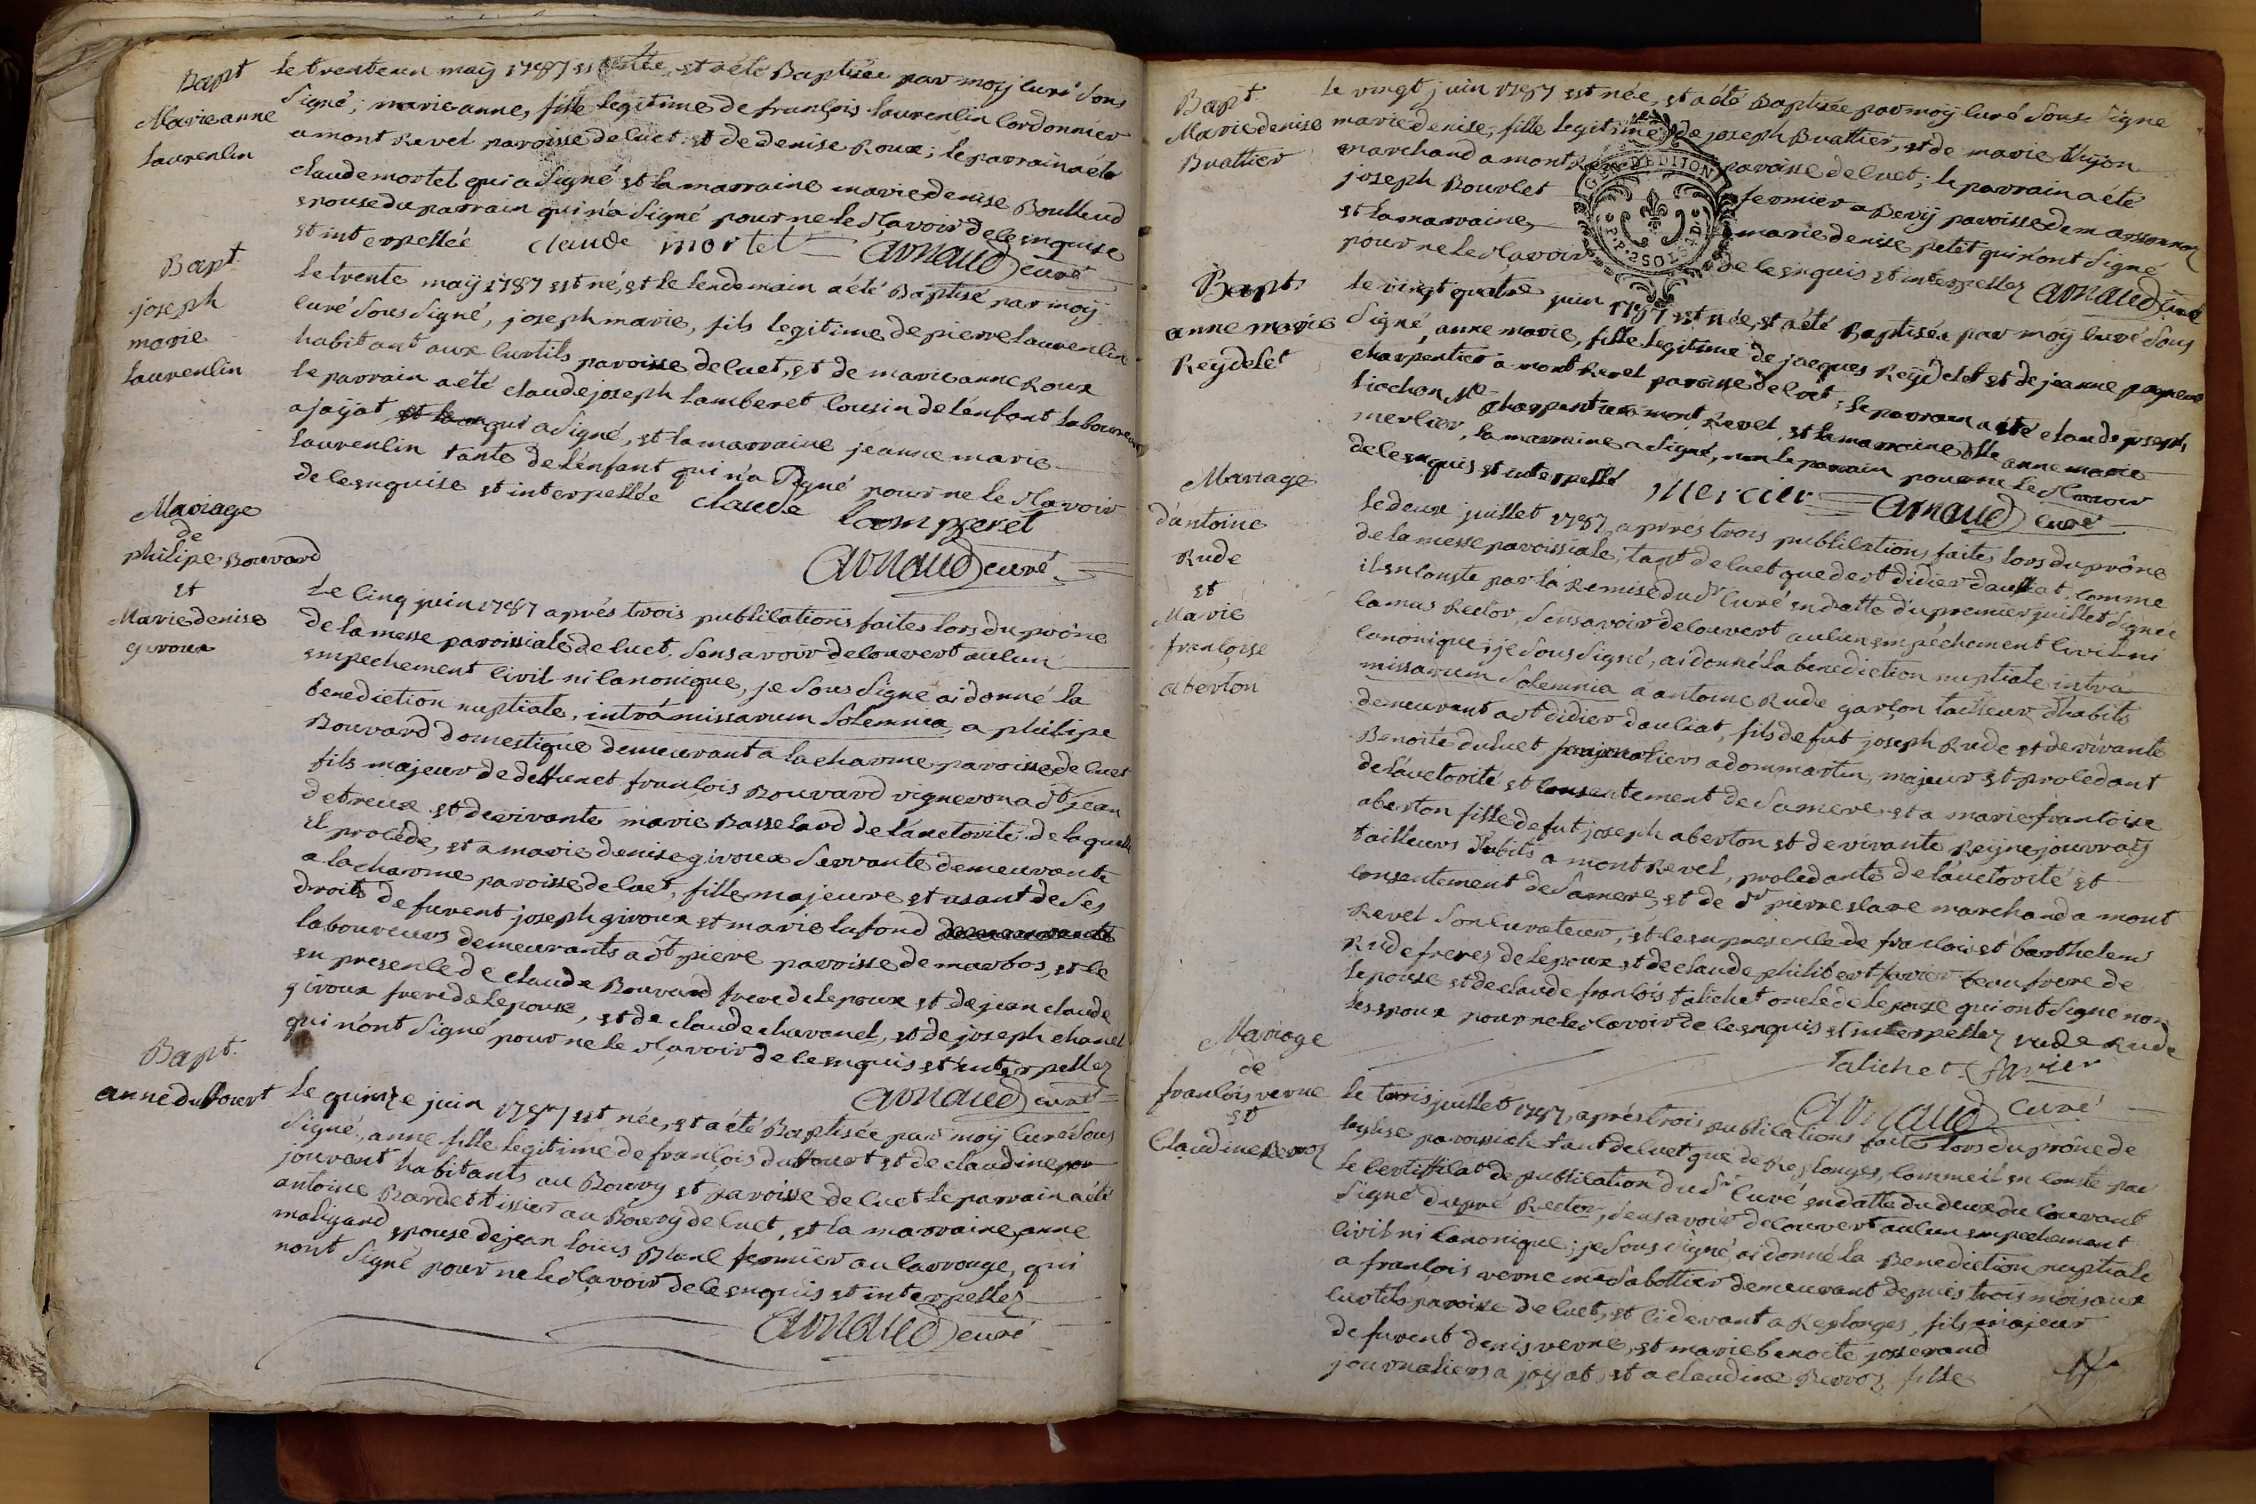 Bapt
Marie anne
Laurenlin
Le trente un maÿ 1787 est née, et a été Baptisée par moÿ curé sous
signé; marie anne, fille legitime de françois Laurenlin cordonnier
a mont Revel paroisse de cuet; et de denise Roux; le parrain a été
claude mortel qui a signé et la marraine marie denise Boulleud
epouse du parrain qui n'a signé pour ne le sçavoir de ce enquise
et interpellée claude mortel Arnaud curé
Bapt
joseph
marie
Laurenlin
Le trente maÿ 1787 est né, et le lendemain a été Baptisé par moÿ
curé sous signé, joseph marie, fils legitime de pierre Laurenlin
habitant aux curtils paroisse de cuet, et de marie anne Roux
le parrain a été claude joseph Lamberet cousin de l'enfant laboureur
a jaÿat qui a signé, et la marraine jeanne marie
Laurenlin tante de l'enfant qui n'a signé pour ne le sçavoir
de ce enquise et interpellée claude lamperet
Arnaud curé
Mariage
de
philipe Bouvard
et
Marie denise
giroux
Le cinq juin 1787 aprés trois publications faites lors du prône
de la messe paroissiale de cuet, sans avoir decouvert aucun
empechement civil ni canonique, je sous signé ai donné la
benediction nuptiale, intrà missarum solemnia, a philipe
Bouvard domestique demeurant a la charme paroisse de cuet
fils majeur de deffunet françois Bouvard vigneron a st jean
detreux et de vivante marie Basseland de l'auctorité de laquelle
il procéde, et a marie denise giroux servante demeurante
a la charme paroisse de cuet, fille majeure et usant de ses
droits de furent joseph giroux et marie lafond
laboureurs demeurants a st piere paroisse de marbos, et ce
en presence de claude Bouvard frere de lepoux et de jean claude
giroux frere de lepouse, et de claude chavanel, et de joseph chanel
qui n'ont signé pour ne le sçavoir de ce enquis et interpellez
Arnaud curé
Bapt.
anne duffouert
Le quinze juin 1787 est née, et a été Baptisée par moÿ curé sous
signé, anne fille legitime de françois duffouert et de claudine
jouvant habitants au Bourg et paroisse de cuet le parrain a été
antoine Bardet tissier au Bourg de cuet, et la marraine anne
maligand epouse de jean louis Blanc fermier au carrouge, qui
n'ont signé pour ne le sçavoir de ce enquis et interpellez
Arnaud curé
Bapt.
Marie denise
Buattier
Le vingt juin 1787 est née, et a été Baptisée par moÿ curé sous signé
marie denise, fille legitime de joseph Buattier, et de marie thijon
marchand a mont Revel paroisse de cuet; le parrain a été
joseph Bourlet fermier a Beviÿ paroisse de marsonnaz
et la marraine, marie denise petet qui n'ont signé
pour ne le sçavoir de ce enquis et interpellez Arnaud curé
GEN. DE DIJON
Bapt.
anne marie
Reydelet
Le vingt quatre juin 1787 est née, et a été Baptisée par moÿ curé sous
signé, anne marie, fille legitime de jacques Reÿdelet et de jeanne
charpentier a mont Revel paroisse de cuet; le parrain a été claude joseph
tiochon Me charpentier a mont Revel, et la marraine dlle anne marie
mercier, la marraine a signé, non le parrain pour ne le sçavoir
de ce enquis et interpellé Mercier Arnaud curé
Mariage
d'antoine
Rude
et
Marie
françoise
aberton
Le deux juillet 1787, aprés trois publications faites lors du prône
de la messe paroissiale, tant de cuet que de st didier d'aussiat, comme
il en conste par la Remise du sr curé en datte du premier juillet signée
camus Rector, sans avoir decouvert aucun empêchement civil ni
canonique, je sous signé, ai donné la benediction nuptiale intrà
missarum solemnia a antoine Rude garçon tailleur d'habits
demeurant a st didier d'auciat, fils de fut joseph Rude et de vivante
Benoite ducuet journaliers a dommartin, majeur et procedant
de l'auctorité et consentement de sa mere, et a marie françoise
aberton fille de fut joseph aberton et de vivante Reÿne jouvraÿ
tailleurs d'habits a mont Revel, procedante de l'auctorité et
consentement de sa mere, et de sr pierre slave marchand a mont
Revel son curateur, et ce en presence de françois et barthelemi
Rude freres de lepoux et de claude philibert favier beau frere de
lepouse et de claude françois talichet oncle de lepouse qui ont signé non
les epoux pour ne le sçavoir de ce enquis et interpellez rude Rude
Talichet favier
Arnaud Curé
Mariage
de
françois verne
et
Claudine Berroz
Le trois juillet 1787, aprés trois publications faites lors du prône de
leglise paroissiale tant de cuet que de Replonges, comme il en conste par
le certifficat de publication du sr curé en datte du deux du courant
signé dupré Rector, sans avoir decouvert aucun empechement
civil ni canonique; je sous signé, ai donné la Benediction nuptiale
a françois verne me sabottier demeurant depuis trois mois aux
curtils paroisse de cuet, et ci devant a Replonges, fils majeur
de furent denis verne, et marie benoite josserand
journaliers a jaÿat, et a claudine Berroz fille